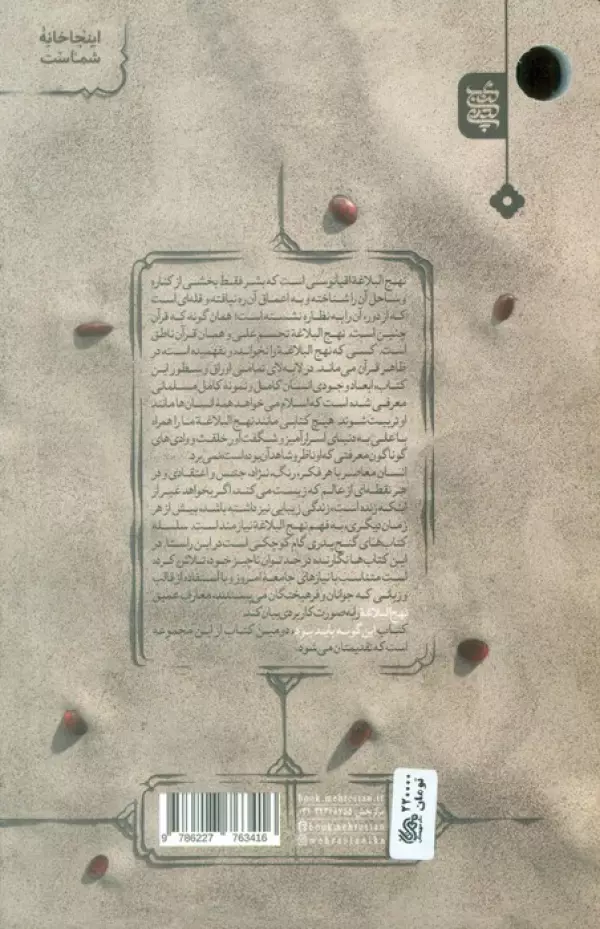 اینجا خانهٔ
شماست
نهج البلاغة اقیانوسی است که بشر فقط بخشی از کناره
و ساحل آن را شناخته و به اعماق آن ره نیافته و قله‌ای است
که از دور، آن را به نظاره نشسته است؛ همان گونه که قرآن
چنین است. نهج البلاغة تجسم علی و همان قرآن ناطق
است. کسی که نهج البلاغة را نخوانده و نفهمیده است، در
ظاهر قرآن می‌ماند. در لابه‌لای تمامی اوراق و سطور این
کتاب، ابعاد وجودی انسان کامل و نمونه کامل مسلمانی
معرفی شده است که اسلام می‌خواهد همهٔ انسان‌ها مانند
او تربیت شوند. هیچ کتابی مانند نهج البلاغة ما را همراه
با علی به دنیای اسرارآمیز و شگفت‌آور خلقت و وادی‌های
گوناگون معرفتی که او ناظر و شاهد آن بوده است نمی‌برد.
انسان معاصر با هر فکر، رنگ، نژاد، جنس و اعتقادی و در
هر نقطه‌ای از عالم که زیست می‌کند، اگر بخواهد غیر از
اینکه زنده است، زندگی زیبایی نیز داشته باشد، بیش از هر
زمان دیگری، به فهم نهج البلاغة نیازمند است. سلسله
کتاب‌های گنج پدری گام کوچکی است در این راستا. در
این کتاب‌ها نگارنده در حد توان ناچیز خود، تلاش کرده
است متناسب با نیازهای جامعهٔ امروز و با استفاده از قالب
و زبانی که جوانان و فرهیختگان می‌پسندند، معارف عمیق
نهج البلاغة را به صورت کاربردی بیان کند.
کتاب این گونه باید برد، دومین کتاب از این مجموعه
است که تقدیمتان می‌شود.
book.mehrestan.ir
مرکز پخش:
@book.mehrestan
۲۲۰۰۰۰
تومان
9 786227 763416